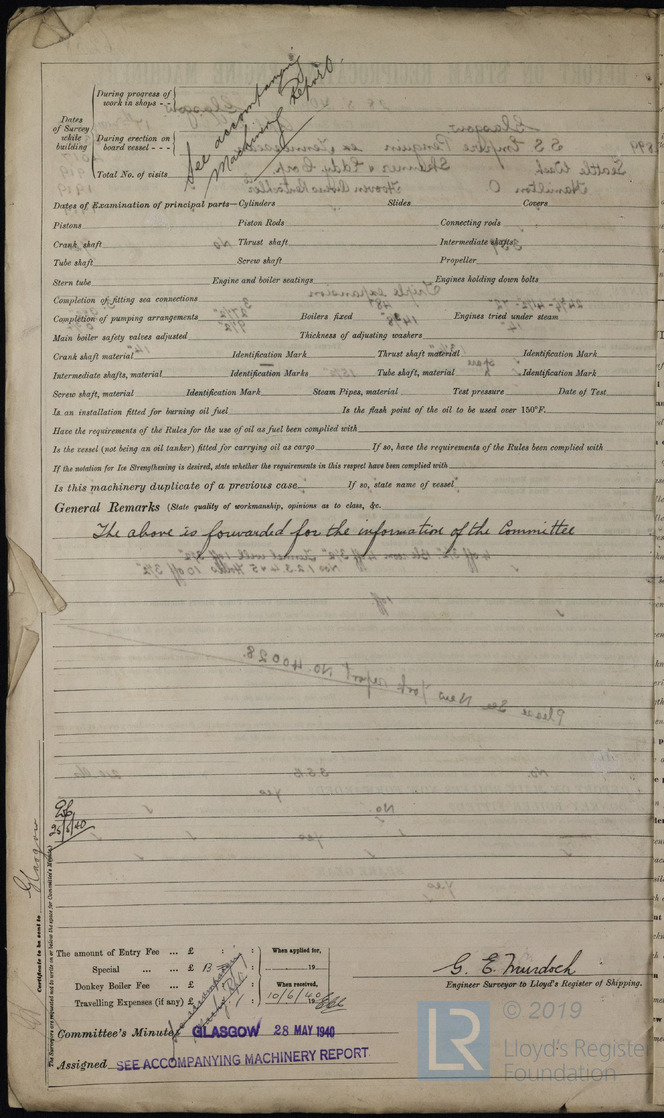 During progress of
work in shops - -
Dates
of Survey
while
building
During erection on
board vessel - - -
Total No. of visits
See accompanying
Machinery Report.
Dates of Examination of principal parts—Cylinders Slides Covers
Pistons Piston Rods Connecting rods
Crank shaft Thrust shaft Intermediate shafts
Tube shaft Screw shaft Propeller
Stern tube Engine and boiler seatings Engines holding down bolts
Completion of fitting sea connections
Completion of pumping arrangements Boilers fixed Engines tried under steam
Main boiler safety valves adjusted Thickness of adjusting washers
Crank shaft material Identification Mark Thrust shaft material Identification Mark
Intermediate shafts, material Identification Marks Tube shaft, material Identification Mark
Screw shaft, material Identification Mark Steam Pipes, material Test pressure Date of Test
Is an installation fitted for burning oil fuel Is the flash point of the oil to be used over 150°F.
Have the requirements of the Rules for the use of oil as fuel been complied with
Is the vessel (not being an oil tanker) fitted for carrying oil as cargo If so, have the requirements of the Rules been complied with
If the notation for Ice Strengthening is desired, state whether the requirements in this respect have been complied with
Is this machinery duplicate of a previous case If so, state name of vessel
General Remarks (State quality of workmanship, opinions as to class, &c.
The above is forwarded for the information of the Committee
Please see New York report No. 40028.
25/5/40
Glasgow
Certificate to be sent to
The Surveyors are requested not to write on or below the space for Committee's Minute.
The amount of Entry Fee ... £ : : When applied for,
Special ... ... £ 19
Donkey Boiler Fee ... £ When received,
Travelling Expenses (if any) £ 10/6/40 19
G. E. Murdoch
Engineer Surveyor to Lloyd's Register of Shipping.
Committee's Minute GLASGOW 28 MAY 1940
Assigned SEE ACCOMPANYING MACHINERY REPORT
LR
© 2019
Lloyd's Register
Foundation